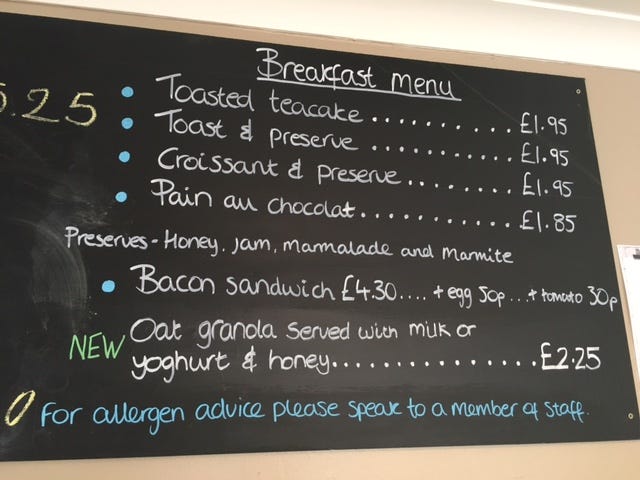 Breakfast Menu
.25
Toasted teacake .......... £1.95
Toast & preserve .......... £1.95
Croissant & preserve ........ £1.95
Pain au chocolat ............ £1.85
Preserves - Honey, jam, marmalade and Marmite
Bacon sandwich £4.30.... + egg 50p ... + tomato 30p
NEW Oat granola served with milk or
yoghurt & honey ............... £2.25
For allergen advice please speak to a member of staff.